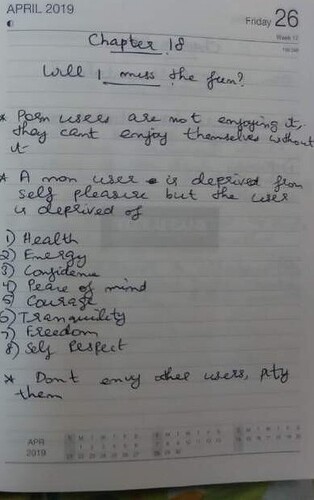 APRIL 2019
Friday 26
Week 17
Chapter 18
Will I miss the fun?
* Porn users are not enjoying it,
they cant enjoy themselves without
it
* A non user is deprived from
self pleasure but the user
is deprived of
1) Health
2) Energy
3) Confidence
4) Peace of mind
5) Courage
6) Tranquility
7) Freedom
8) Self Respect
* Dont envy other users, pity
them
APR
2019